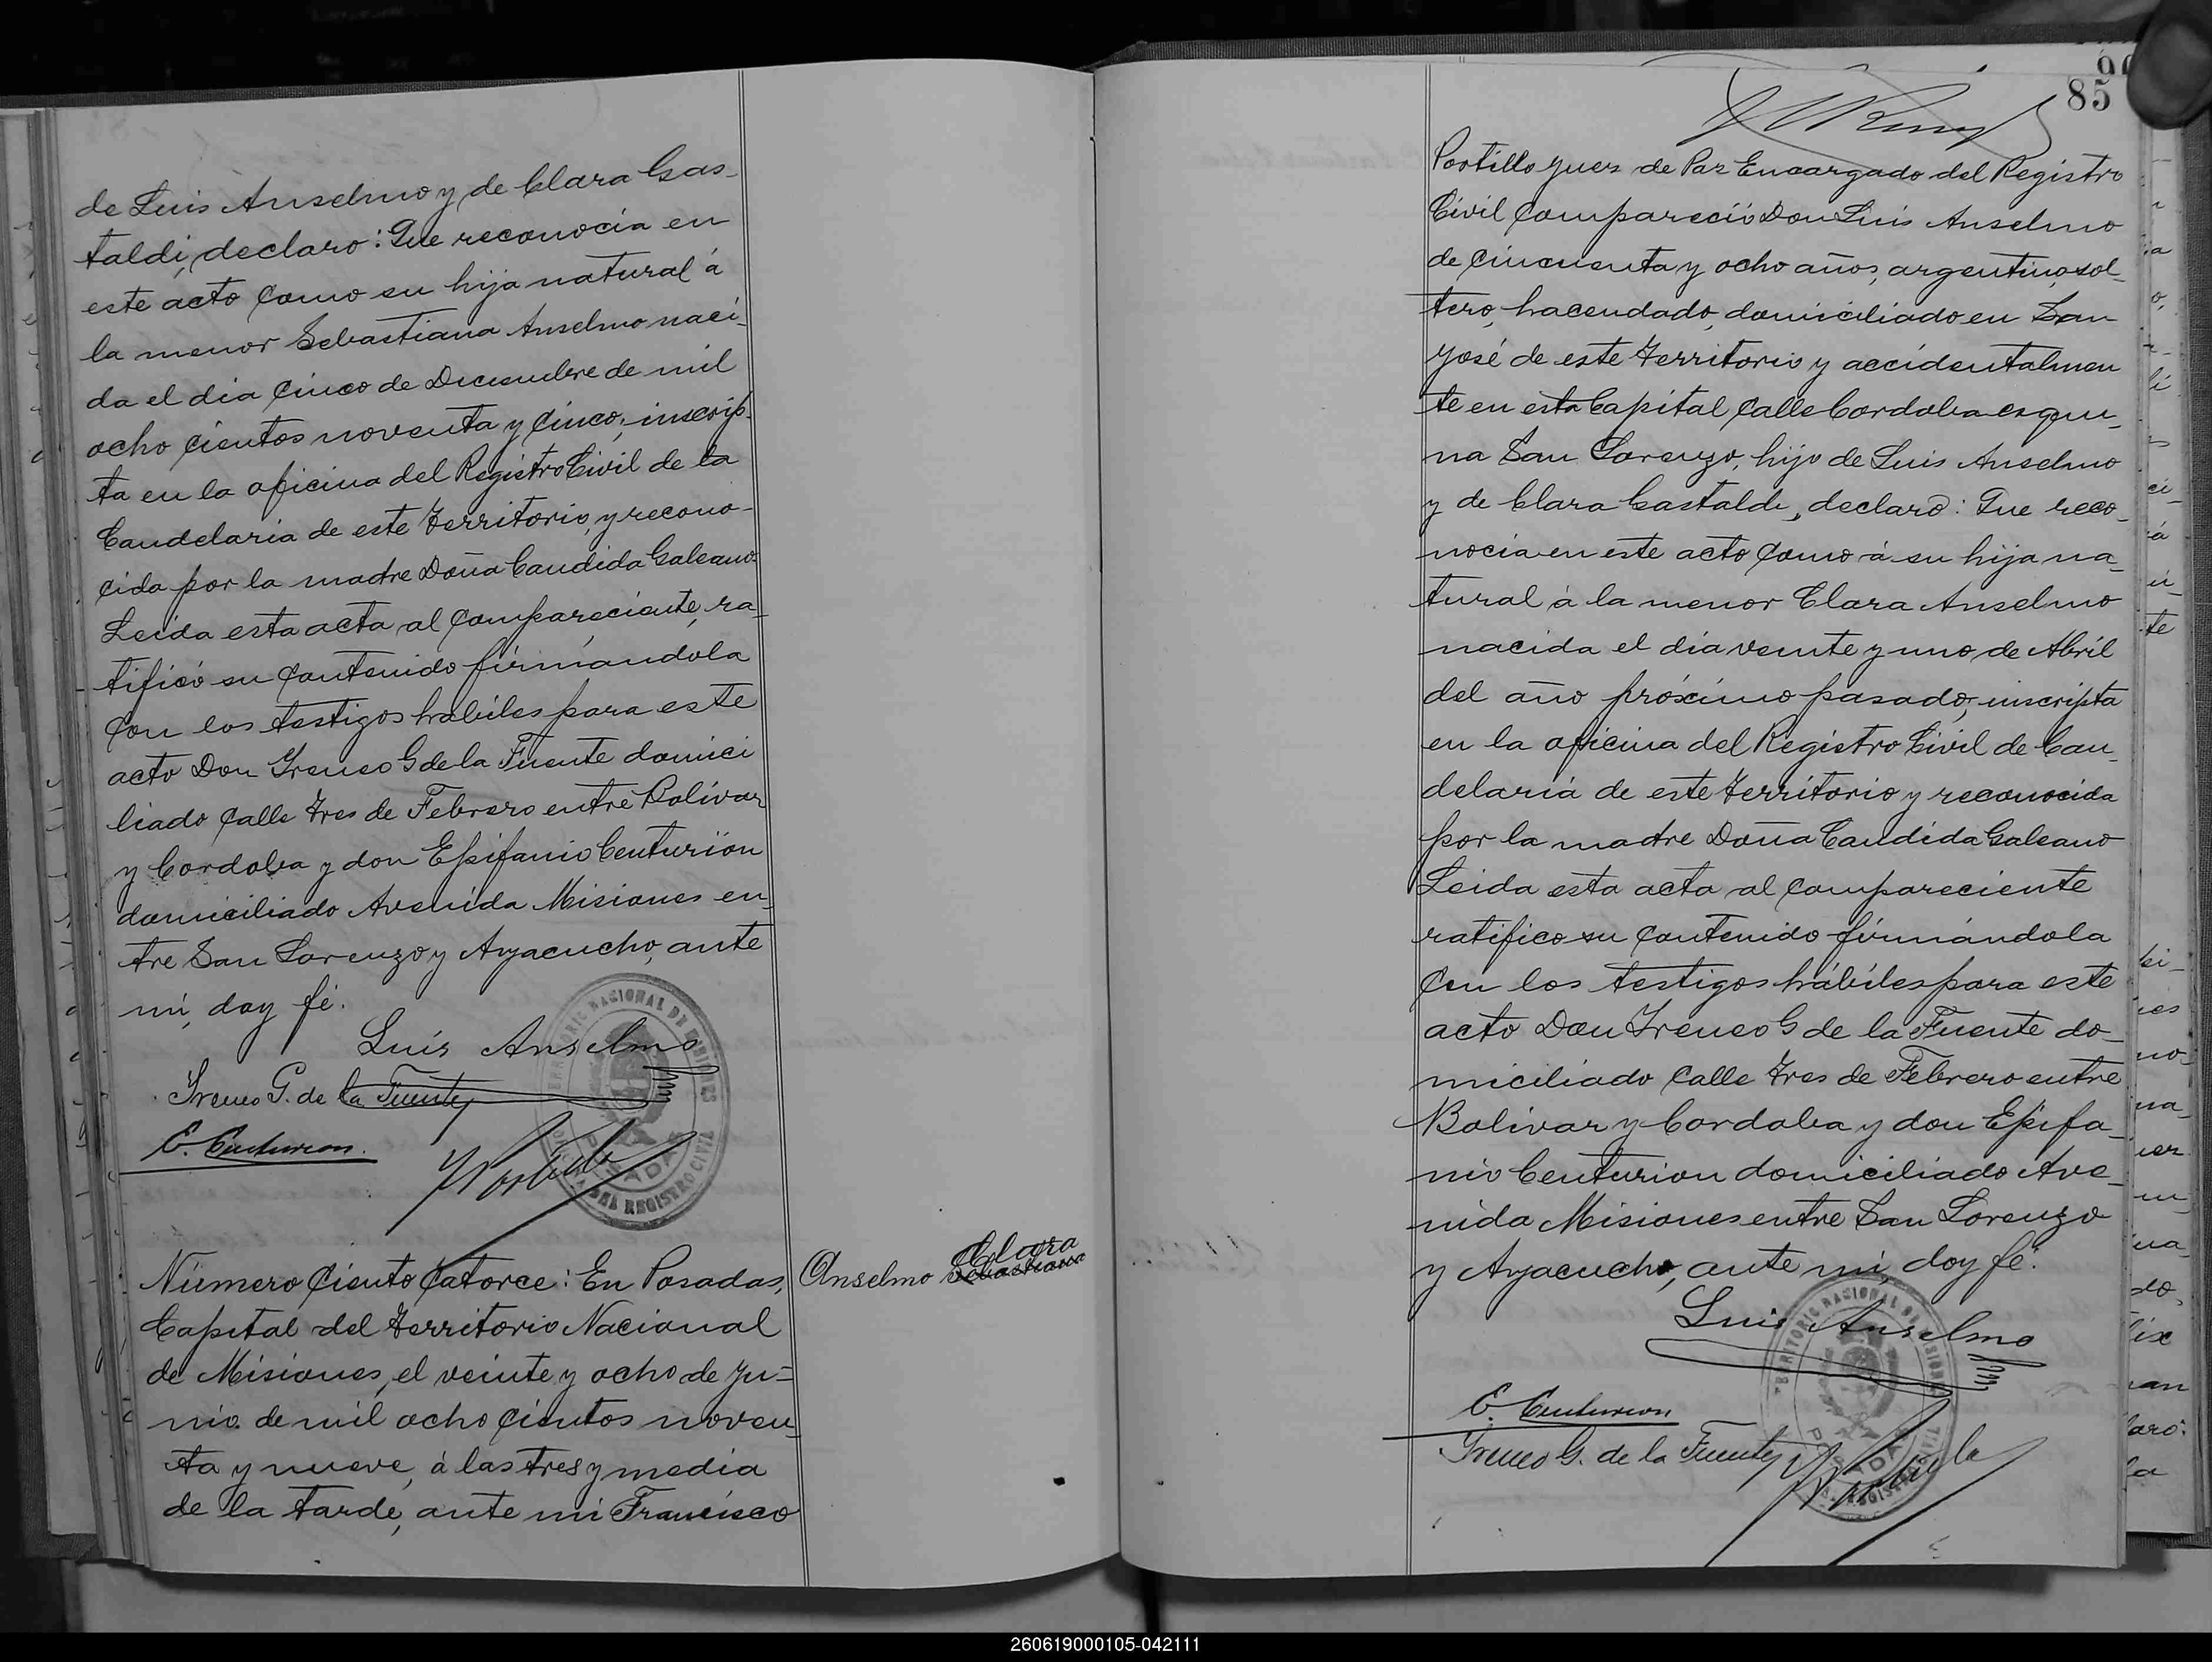 de Luis Anselmo y de Clara Gas-
taldi, declaro: Que reconocia en
este acto como su hija natural á
la menor Sebastiana Anselmo naci-
da el dia cinco de Diciembre de mil
ocho cientos noventa y cinco, inscrip-
ta en la oficina del Registro Civil de la
Candelaria de este territorio, y recono-
cida por la madre Doña Candida Galeano
Leida esta acta al compareciente, ra-
tificó su contenido firmándola
con los testigos habiles para este
acto Don Ireneo G de la Fuente domici
liado calle Tres de Febrero entre Bolívar
y Cordoba y don Epifanio Centurión
domiciliado Avenida Misiones en-
tre San Lorenzo y Ayacucho, ante
mi, doy fé.
Luis Anselmo
Ireneo G. de la Fuente
E. Centurion.
TERRITORIO NACIONAL DE MISIONES
POSADAS
DEL REGISTRO CIVIL
Número Ciento Catorce: En Posadas,
Capital del Territorio Nacional
de Misiones, el veinte y ocho de Ju-
nio de mil ocho cientos noven-
ta y nueve, á las tres y media
de la tarde, ante mi Francisco
Clara
Anselmo Sebastiana
85
Portillo Juez de Paz Encargado del Registro
Civil compareció Don Luis Anselmo
de cincuenta y ocho años, argentino, sol-
tero, hacendado, domiciliado en San
José de este Territorio y accidentalmen
te en esta Capital calle Cordoba esqui-
na San Lorenzo, hijo de Luis Anselmo
y de Clara Gastaldi, declaró: Que reco-
nocia en este acto como á su hija na-
tural á la menor Clara Anselmo
nacida el dia veinte y uno de Abril
del año próximo pasado, inscripta
en la oficina del Registro Civil de Can-
delaria de este territorio y reconocida
por la madre Doña Candida Galeano
Leida esta acta al compareciente
ratifico su contenido firmándola
con los testigos hábiles para este
acto Don Ireneo G de la Fuente do-
miciliado calle Tres de Febrero entre
Bolivar y Cordoba y don Epifa-
nio Centurion domiciliado Ave-
nida Misiones entre San Lorenzo
y Ayacucho, ante mi, doy fé.
Luis Anselmo
E. Centurion
Ireneo G. de la Fuente
TERRITORIO NACIONAL DE MISIONES
260619000105-042111